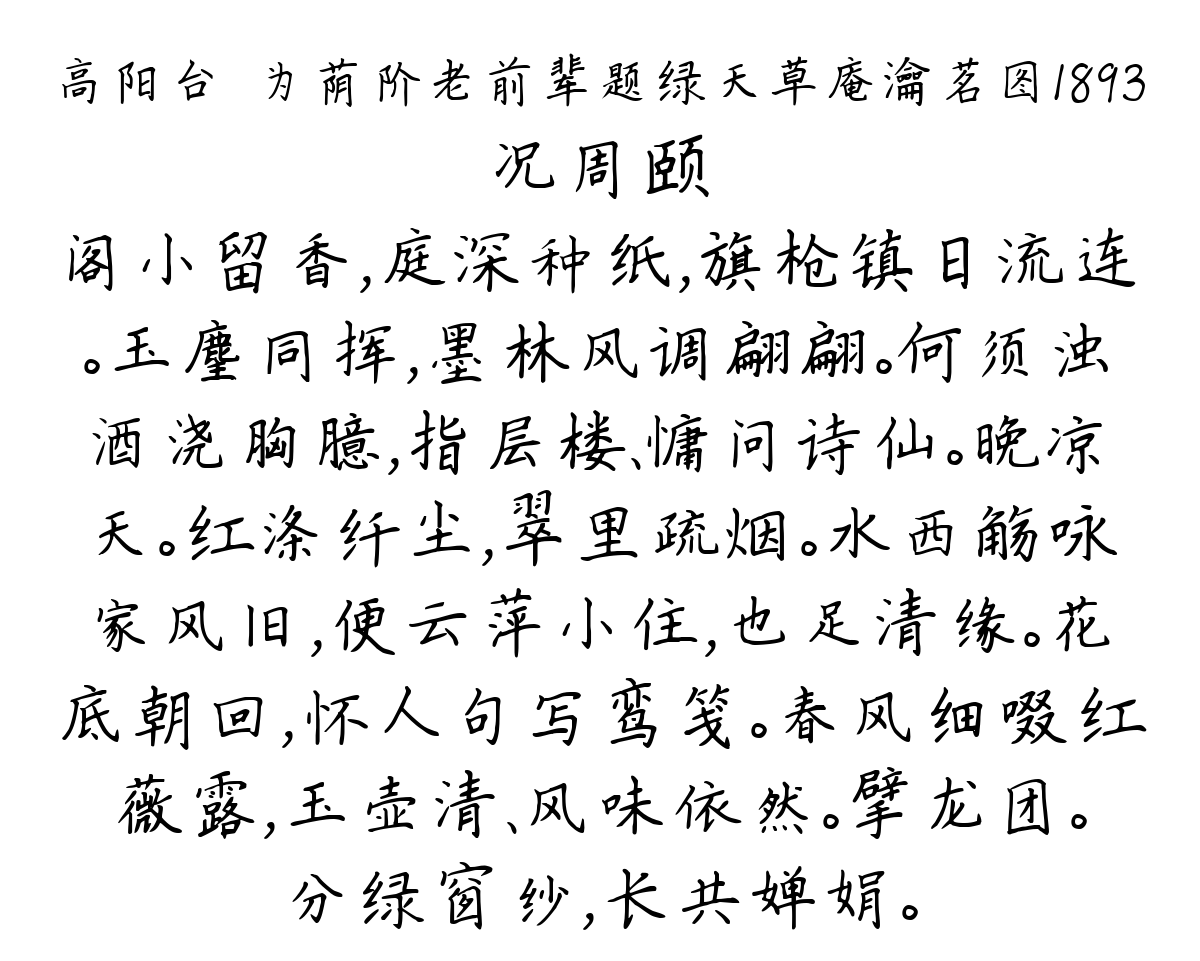 高阳台 为荫阶老前辈题绿天草庵瀹茗图1893
况周颐
阁小留香,庭深种纸,旗枪镇日流连
。玉麈同挥,墨林风调翩翩。何须浊
酒浇胸臆,指层楼、慵问诗仙。晚凉
天。红涤纤尘,翠里疏烟。水西觞咏
家风旧,便云萍小住,也足清缘。花
底朝回,怀人句写鸾笺。春风细啜红
薇露,玉壶清、风味依然。擘龙团。
分绿窗纱,长共婵娟。